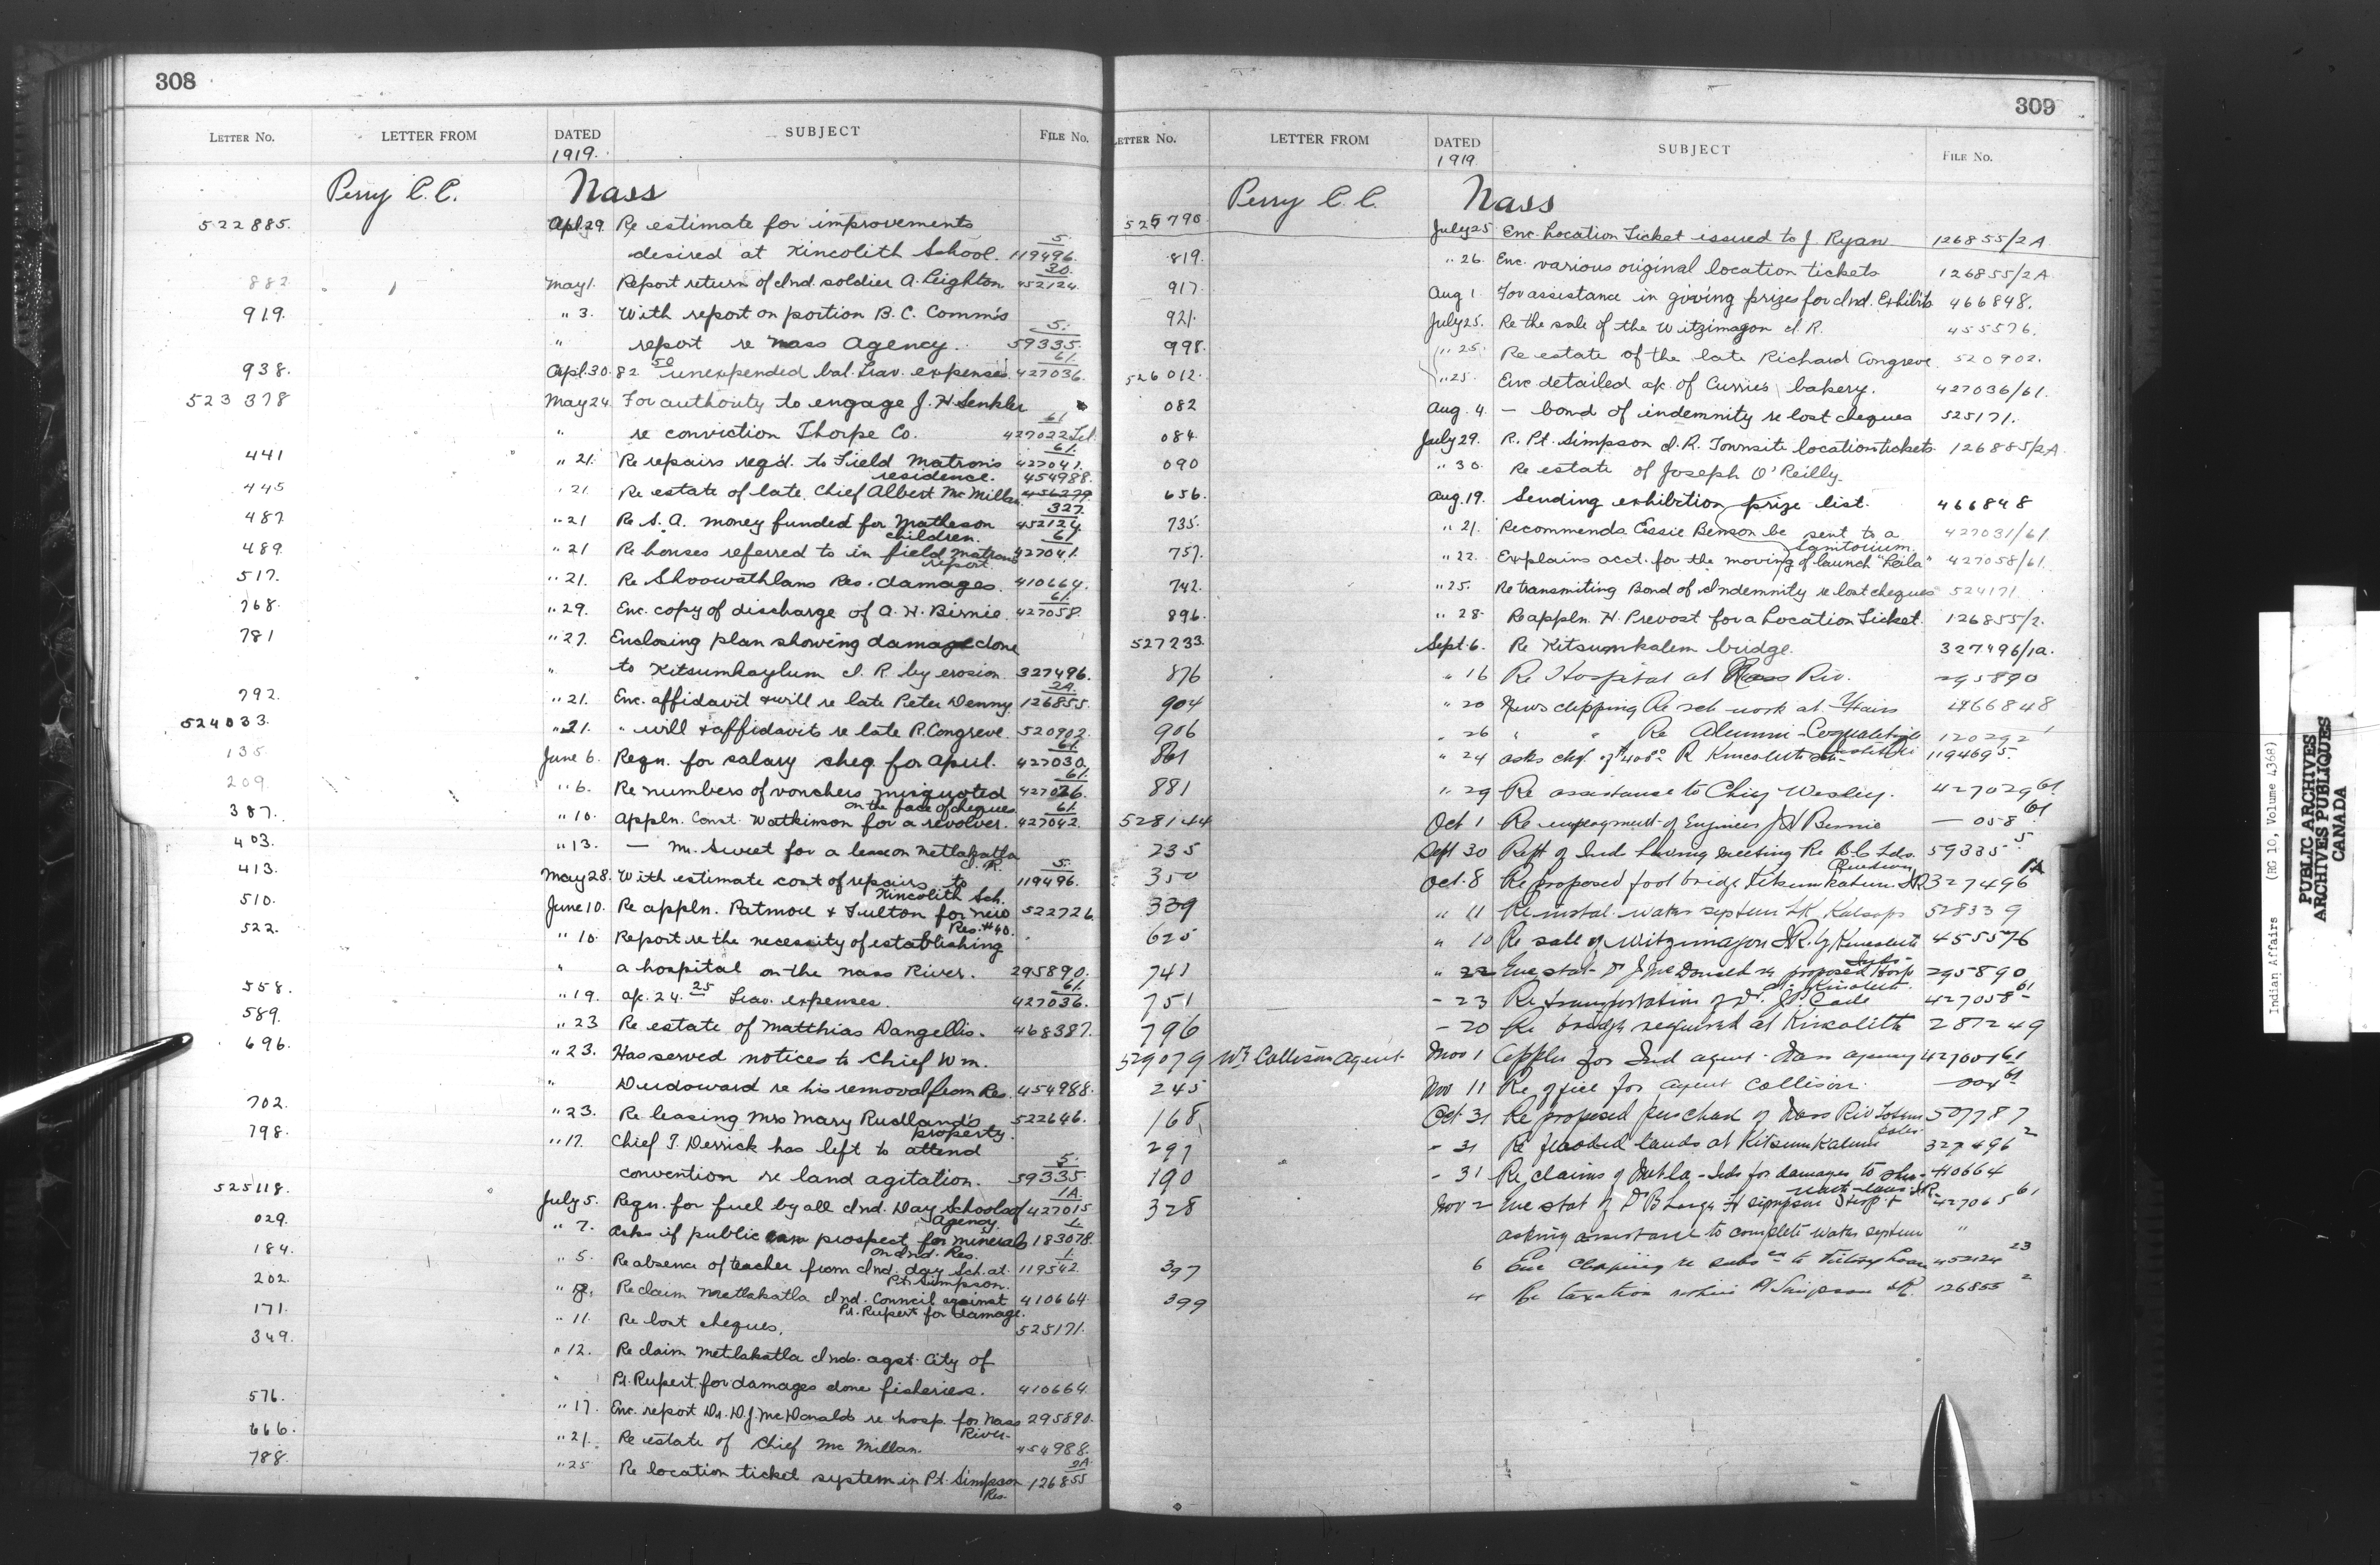 308
LETTER No. LETTER FROM DATED SUBJECT FILE No.
1919.
Perry C. C. Nass
522885. Apl. 29. Re estimate for improvements 5.
desired at Kincolith School. 119496.
30.
882 May 1. Report return of Ind. soldier A. Leighton 452124.
919. " 3. With report on portion B. C. Comm's 5.
" report re Nass Agency. 59335.
61.
938. Apl. 30. 82 50 unexpended bal. Trav. expenses. 427036.
523378 May 24 For authority to engage J. H. Senkler 61
" re conviction Thorpe Co. 427022 Tel.
61.
441 " 21. Re repairs reqd. to Field Matron's 427041.
residence. 454988.
445 " 21. Re estate of late Chief Albert McMillan 456279.
327.
487 " 21 Re S. A. money funded for Matheson 452124
children. 61
489. " 21 Re houses referred to in field matrons 427041.
report.
517. " 21. Re Shoowathlans Res. damages. 410664.
61.
768. " 29. Enc. copy of discharge of A. H. Birnie. 427058.
781 " 27. Enclosing plan showing damage done
" to Kitsumkaylum I. R by erosion. 327496.
2A.
792. " 21. Enc. affidavit & will re late Peter Denny. 126855.
524033. " 21. " will & affidavits re late R. Congreve. 520902.
61.
135. June 6. Reqn. for salary cheq. for April. 427030.
61.
209. " 6. Re numbers of vouchers misquoted 427026.
on the face of cheques 61.
387. " 10. Appln. Const. Watkinson for a revolver. 427042.
403. " 13. — Mr. Sweet for a lease on Metlakatla
I. R. 5.
413. May 28. With estimate cost of repairs to 119496.
Kincolith Sch.
510. June 10. Re appln. Patmore & Fulton for new 522726
Res. #40.
522. " 10. Report re the necessity of establishing
" a hospital on the Nass River. 295890.
61.
558. " 19. a/c. 24. 25 Trav. expenses. 427036.
589. " 23 Re estate of Matthias Dangellis. 468387.
696. " 23. Has served notices to Chief Wm.
" Dudoward re his removal from Res. 454988.
702. " 23. Re leasing Mrs Mary Rudland's 522646.
property.
798. " 17. Chief T. Derrick has left to attend
5.
convention re land agitation. 59335.
1A.
525118. July 5. Reqn. for fuel by all Ind. Day Schools of 427015
Agency.
029. " 7. Asks if public can prospect for minerals 183078.
on Ind. Res. 1.
184. " 5. Re absence of teacher from Ind. day Sch. at 119542.
Pt. Simpson.
202. " 8. Re claim Metlakatla Ind. Council against 410664
Pr. Rupert for damage.
171. " 11. Re lost cheques. 525171.
349. " 12. Re claim Metlakatla Inds. agst. City of
" Pr. Rupert for damages done fisheries. 410664
576. " 17. Enc. report Dr. D. J. McDonald's re hosp. for Nass 295890.
River.
666. " 21. Re estate of Chief McMillan. 454988.
2A.
788. " 25 Re location ticket system in Pt. Simpson 126855
Res.
309
LETTER No. LETTER FROM DATED SUBJECT FILE No.
1919
Perry C. C. Nass
525790. July 25 Enc. Location Ticket issued to J. Ryan 126855/2A
819. " 26. Enc. various original location tickets 126855/2A.
917. Aug 1. For assistance in giving prizes for Ind. Exhibits 466848.
921. July 25. Re the sale of the Witzimagon I. R. 455576.
998. " 25. Re estate of the late Richard Congreve. 520902.
526012. " 25. Enc detailed a/c. of Curries bakery. 427036/61.
082 Aug. 4. — bond of indemnity re lost cheques 525171.
084. July 29. R. Pt. Simpson I. R. Townsite location tickets. 126885/2A
090 " 30. Re estate of Joseph O'Reilly.
656. Aug. 19. Sending exhibition prize list. 466848
735. " 21. Recommends Essie Benson be sent to a 427031/61.
Sanitorium.
757. " 22. Explains acct. for the moving of launch "Leila" 427058/61.
742. " 25. Re transmiting Bond of Indemnity re lost cheques 524171
896. " 28. Re appln. H. Prevost for a Location Ticket. 126855/2.
527233. Sept. 6. Re Kitsumkalem bridge. 327496/1a.
876 " 16 Re Hospital at Nass Riv. 295890
904 " 20 News clipping Re sch work at Fairs 466848
906 " 26 " " Re Alumni-Coqualeetza 120292
Institute
861 " 24 asks chq. of $400 00 R Kincolith Sch. 119469 5.
881 " 29 Re assistance to Chief Wesley. 427029 61.
528144 Oct 1 Re employment of Engineer J H Birnie — 058 61.
235 Sept 30 Rept of Inds having meeting Re B C Inds. 59335 5
350 Oct. 8 Re proposed foot bridge Kitsumkalum IR 327496 1A
339 " 11 Re instal. water system 528339
625 " 10 Re sale of Witzimagon IR. by Kincolith 455576
Inds.
741 " 22 Enc stat. Dr J McDonald re proposed Hosp 295890
at Kincolith.
751 - 23 Re transportation of Dr. 427058 61
796 - 20 Re bridge required at Kincolith 287249
529079 Wm Collison Agent Nov 1 Appln for Ind agent. Nass agency 427001 61
245 Nov 11 Re office for agent Collison. — 004 61
168, Oct. 31 Re proposed purchase of Nass Riv Totem 507787
Poles.
297 - 31 Re flooded lands at Kitsumkalum 327496 2
190 - 31 Re claims of Metla- Inds for damages to 410664
328 Nov 2 Enc stat of Dr Large Pt Simpson Hosp. & 427065 61
asking assistance to complete water system "
397 6 Enc clipping re subs to Victory Loan 452124 23
399 " Re taxation within Pt Simpson IR. 126855 2
Indian Affairs (RG 10, Volume 4368)
PUBLIC ARCHIVES
ARCHIVES PUBLIQUES
CANADA